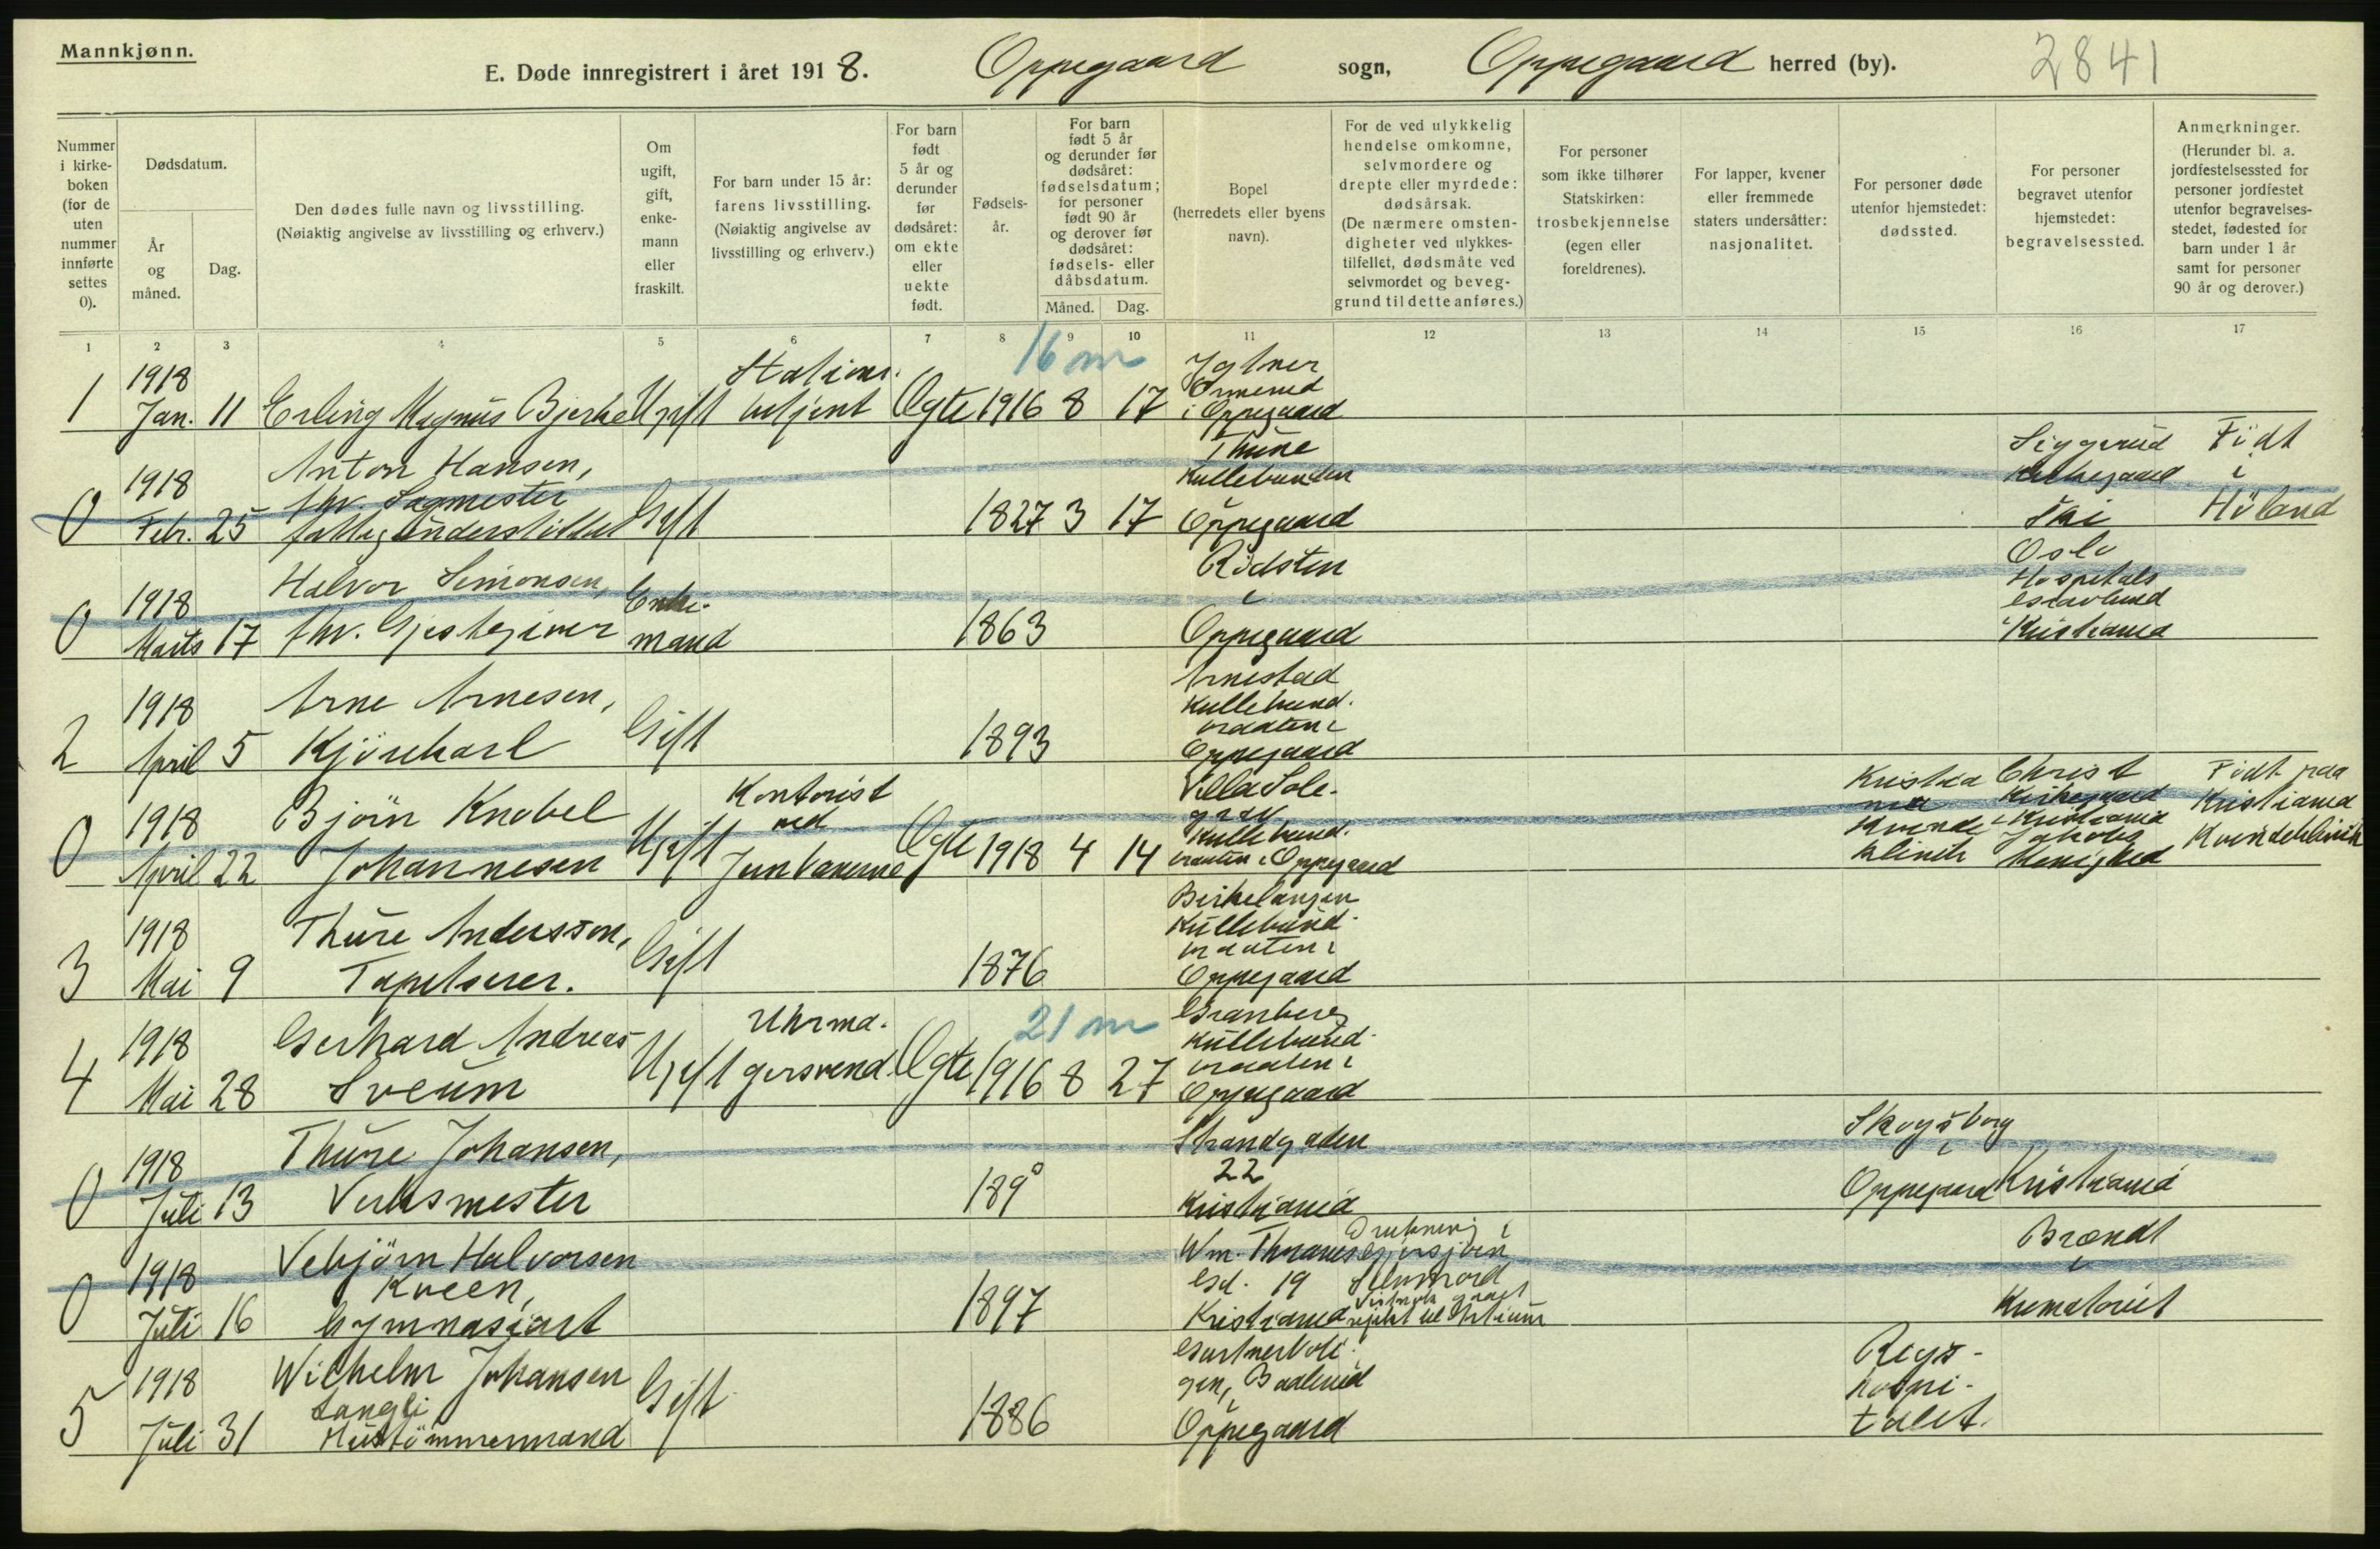 Mannkjønn.
E. Døde innregistrert i året 1918. Oppegaard sogn, Oppegaard herred (by).
2841
Nummer i kirke-boken (for de uten nummer innførte settes 0).
Dødsdatum.
År og måned.
Dag.
Den dødes fulle navn og livsstilling.
(Nøiaktig angivelse av livsstilling og erhverv.)
Om ugift, gift, enke-mann eller fraskilt.
For barn under 15 år: farens livsstilling.
(Nøiaktig angivelse av livsstilling og erhverv.)
For barn født 5 år og derunder før dødsåret: om ekte eller uekte født.
Fødsels-år.
For barn født 5 år og derunder før dødsåret: fødselsdatum; for personer født 90 år og derover før dødsåret: fødsels- eller dåbsdatum.
Måned.
Dag.
Bopel (herredets eller byens navn).
For de ved ulykkelig hendelse omkomne, selvmordere og drepte eller myrdede: dødsårsak.
(De nærmere omsten-digheter ved ulykkes-tilfellet, dødsmåte ved selvmordet og beveg-grund til dette anføres.)
For personer som ikke tilhører Statskirken: trosbekjennelse (egen eller foreldrenes).
For lapper, kvener eller fremmede staters undersåtter: nasjonalitet.
For personer døde utenfor hjemstedet: dødssted.
For personer begravet utenfor hjemstedet: begravelsessted.
Anmerkninger.
(Herunder bl. a. jordfestelsessted for personer jordfestet utenfor begravelses-stedet, fødested for barn under 1 år samt for personer 90 år og derover.)
1 2 3 4 5 6 7 8 9 10 11 12 13 14 15 16 17
16 m
1 1918 Jan. 11 Erling Magnus Bjerke Ugift Stations. betjent Ægte 1916 8 17 Ormerud i Oppegaard
0 1918 Febr. 25 Anton Hansen, fhv. Sagmester fattigunderstøttet Gift 1827 3 17 Thune Kullebunden Oppegaard Siggerud Kirkegaard Ski Født i Høland
0 1918 Marts 17 Halvor Simonsen, fhv. Gjestgiver Enke-mand 1863 Rødsten i Oppegaard Oslo Hospitals Gravlund i Kristiania
2 1918 April 5 Arne Arnesen, Kjørekarl Gift 1893 Arnestad Kullebund. braaten i Oppegaard
0 1918 April 22 Bjørn Knobel Johannesen Ugift Kontorist ved Jernbanerne Ægte 1918 4 14 Villa Sole- Kullebund. braaten i Oppegaard Kristia nia Kvinde klinik Christ Kirkegaard i Kristiania Jakobs Menighed Født paa Kristiania Kvindeklinik
3 1918 Mai 9 Thure Andersson, Tapetserer. Gift 1876 Birkelangen Kullebund. braaten i Oppegaard
21 m
4 1918 Mai 28 Gerhard Andreas Sveum Ugift Uhrma. gersvend. Ægte 1916 8 27 Granberg Kullebund. braaten i Oppegaard
0 1918 Juli 13 Thure Johansen, Verksmester 1890 Strandgaden 22 Kristiania Skogsborg i Oppegaard Kristiania
0 1918 Juli 16 Vebjørn Halvorsen Kveen, Gymnasiast 1897 Wm. Thranes Gd. 19 Kristiania Drukning i Gjersjøen Selvmord gaaet rejekt til Artium Brændt i Krematoriet
5 1918 Juli 31 Wilhelm Johansen Langli Hustømmermand Gift 1886 Gartnerboli. gen, Baalerud Oppegaard Rigs- hospi- talet.